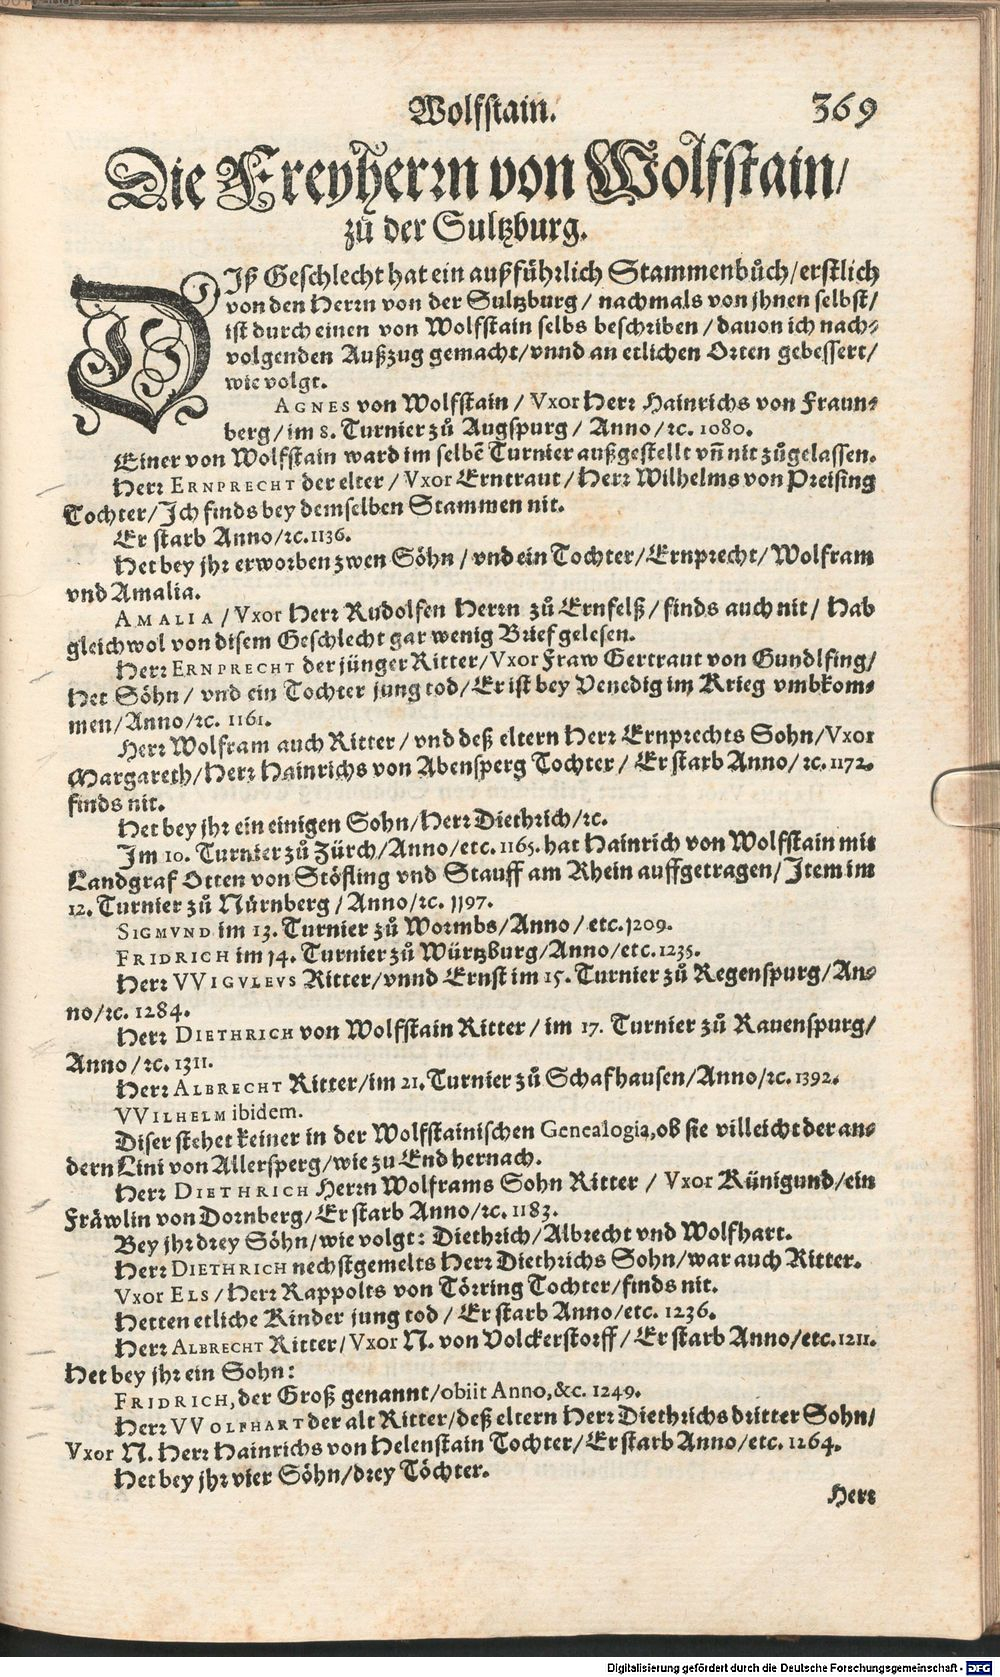 Wolfstain. 369
Die Freyherrn von Wolfstain/
zů der Sultzburg.
DIß Geschlecht hat ein außführlich Stammenbůch/erstlich
von den Herrn von der Sultzburg / nachmals von jhnen selbst/
ist durch einen von Wolfstain selbs beschriben / dauon ich nach⸗
volgenden Außzug gemacht/vnnd an etlichen Orten gebessert/
wie volgt.
AGNES von Wolfstain / Vxor Herr Hainrichs von Fraun⸗
berg/im 8. Turnier zů Augspurg / Anno/ꝛc. 1080.
Einer von Wolfstain ward im selbē Turnier außgestellt vñ nit zůgelassen.
Herr ERNPRECHT der elter / Vxor Erntraut / Herr Wilhelms von Preising
Tochter/ Ich finds bey demselben Stammen nit.
Er starb Anno/ꝛc. 1136.
Het bey jhr erworben zwen Söhn / vnd ein Tochter/Ernprecht/ Wolfram
vnd Amalia.
AMALIA / Vxor Herr Rudolfen Herrn zů Ernfelß / finds auch nit / Hab
gleichwol von disem Geschlecht gar wenig Brief gelesen.
Herr ERNPRECHT der jünger Ritter/ Vxor Fraw Gertraut von Gundlfing/
Het Söhn / vnd ein Tochter jung tod/ Er ist bey Venedig im Krieg vmbkom⸗
men/Anno/ꝛc. 1161.
Herr Wolfram auch Ritter / vnd deß eltern Herr Ernprechts Sohn/Vxor
Margareth/Herr Hainrichs von Abensperg Tochter / Er starb Anno/ ꝛc. 1172.
finds nit.
Het bey jhr ein einigen Sohn/Herr Diethrich/ꝛc.
Im 10. Turnier zů Zürch/Anno/etc. 1165. hat Hainrich von Wolfstain mit
Landgraf Otten von Stöfling vnd Stauff am Rhein auffgetragen/ Item im
12. Turnier zů Nürnberg / Anno/ꝛc. 1197.
SIGMVND im 13. Turnier zů Wormbs/Anno / etc. 1209.
FRIDRICH im 14. Turnier zů Würtzburg/Anno/etc. 1235.
Herr VVIGVLEVS Ritter/vnnd Ernst im 15. Turnier zů Regenspurg/An⸗
no/ꝛc. 1284.
Herr DIETHRICH von Wolfstain Ritter / im 17. Turnier zů Rauenspurg/
Anno / ꝛc. 1311.
Herr ALBRECHT Ritter/im 21. Turnier zů Schafhausen/Anno/ꝛc. 1392.
VVILHELM ibidem.
Diser stehet keiner in der Wolfstainischen Genealogia, ob sie villeicht der an⸗
dern Lini von Allersperg/wie zu End hernach.
Herr DIETHRICH Herrn Wolframs Sohn Ritter / Vxor Künigund/ein
Fräwlin von Dornberg/ Er starb Anno/ꝛc. 1183.
Bey jhr drey Söhn/wie volgt: Diethrich/Albrecht vnd Wolfhart.
Herr DIETHRICH nechstgemelts Herr Diethrichs Sohn/war auch Ritter.
Vxor ELS / Herr Rappolts von Törring Tochter/finds nit.
Hetten etliche Kinder jung tod / Er starb Anno/etc. 1236.
Herr ALBRECHT Ritter/ Vxor N. von Volckerstorff / Er starb Anno/etc. 1211.
Het bey jhr ein Sohn:
FRIDRICH, der Groß genannt/obiit Anno, &c. 1249.
Herr VVOLFHART der alt Ritter/deß eltern Herr Diethrichs dritter Sohn/
Vxor N. Herr Hainrichs von Helenstain Tochter/ Er starb Anno/etc. 1264.
Het bey jhr vier Söhn/drey Töchter.
Herr
Digitalisierung gefördert durch die Deutsche Forschungsgemeinschaft - DFG